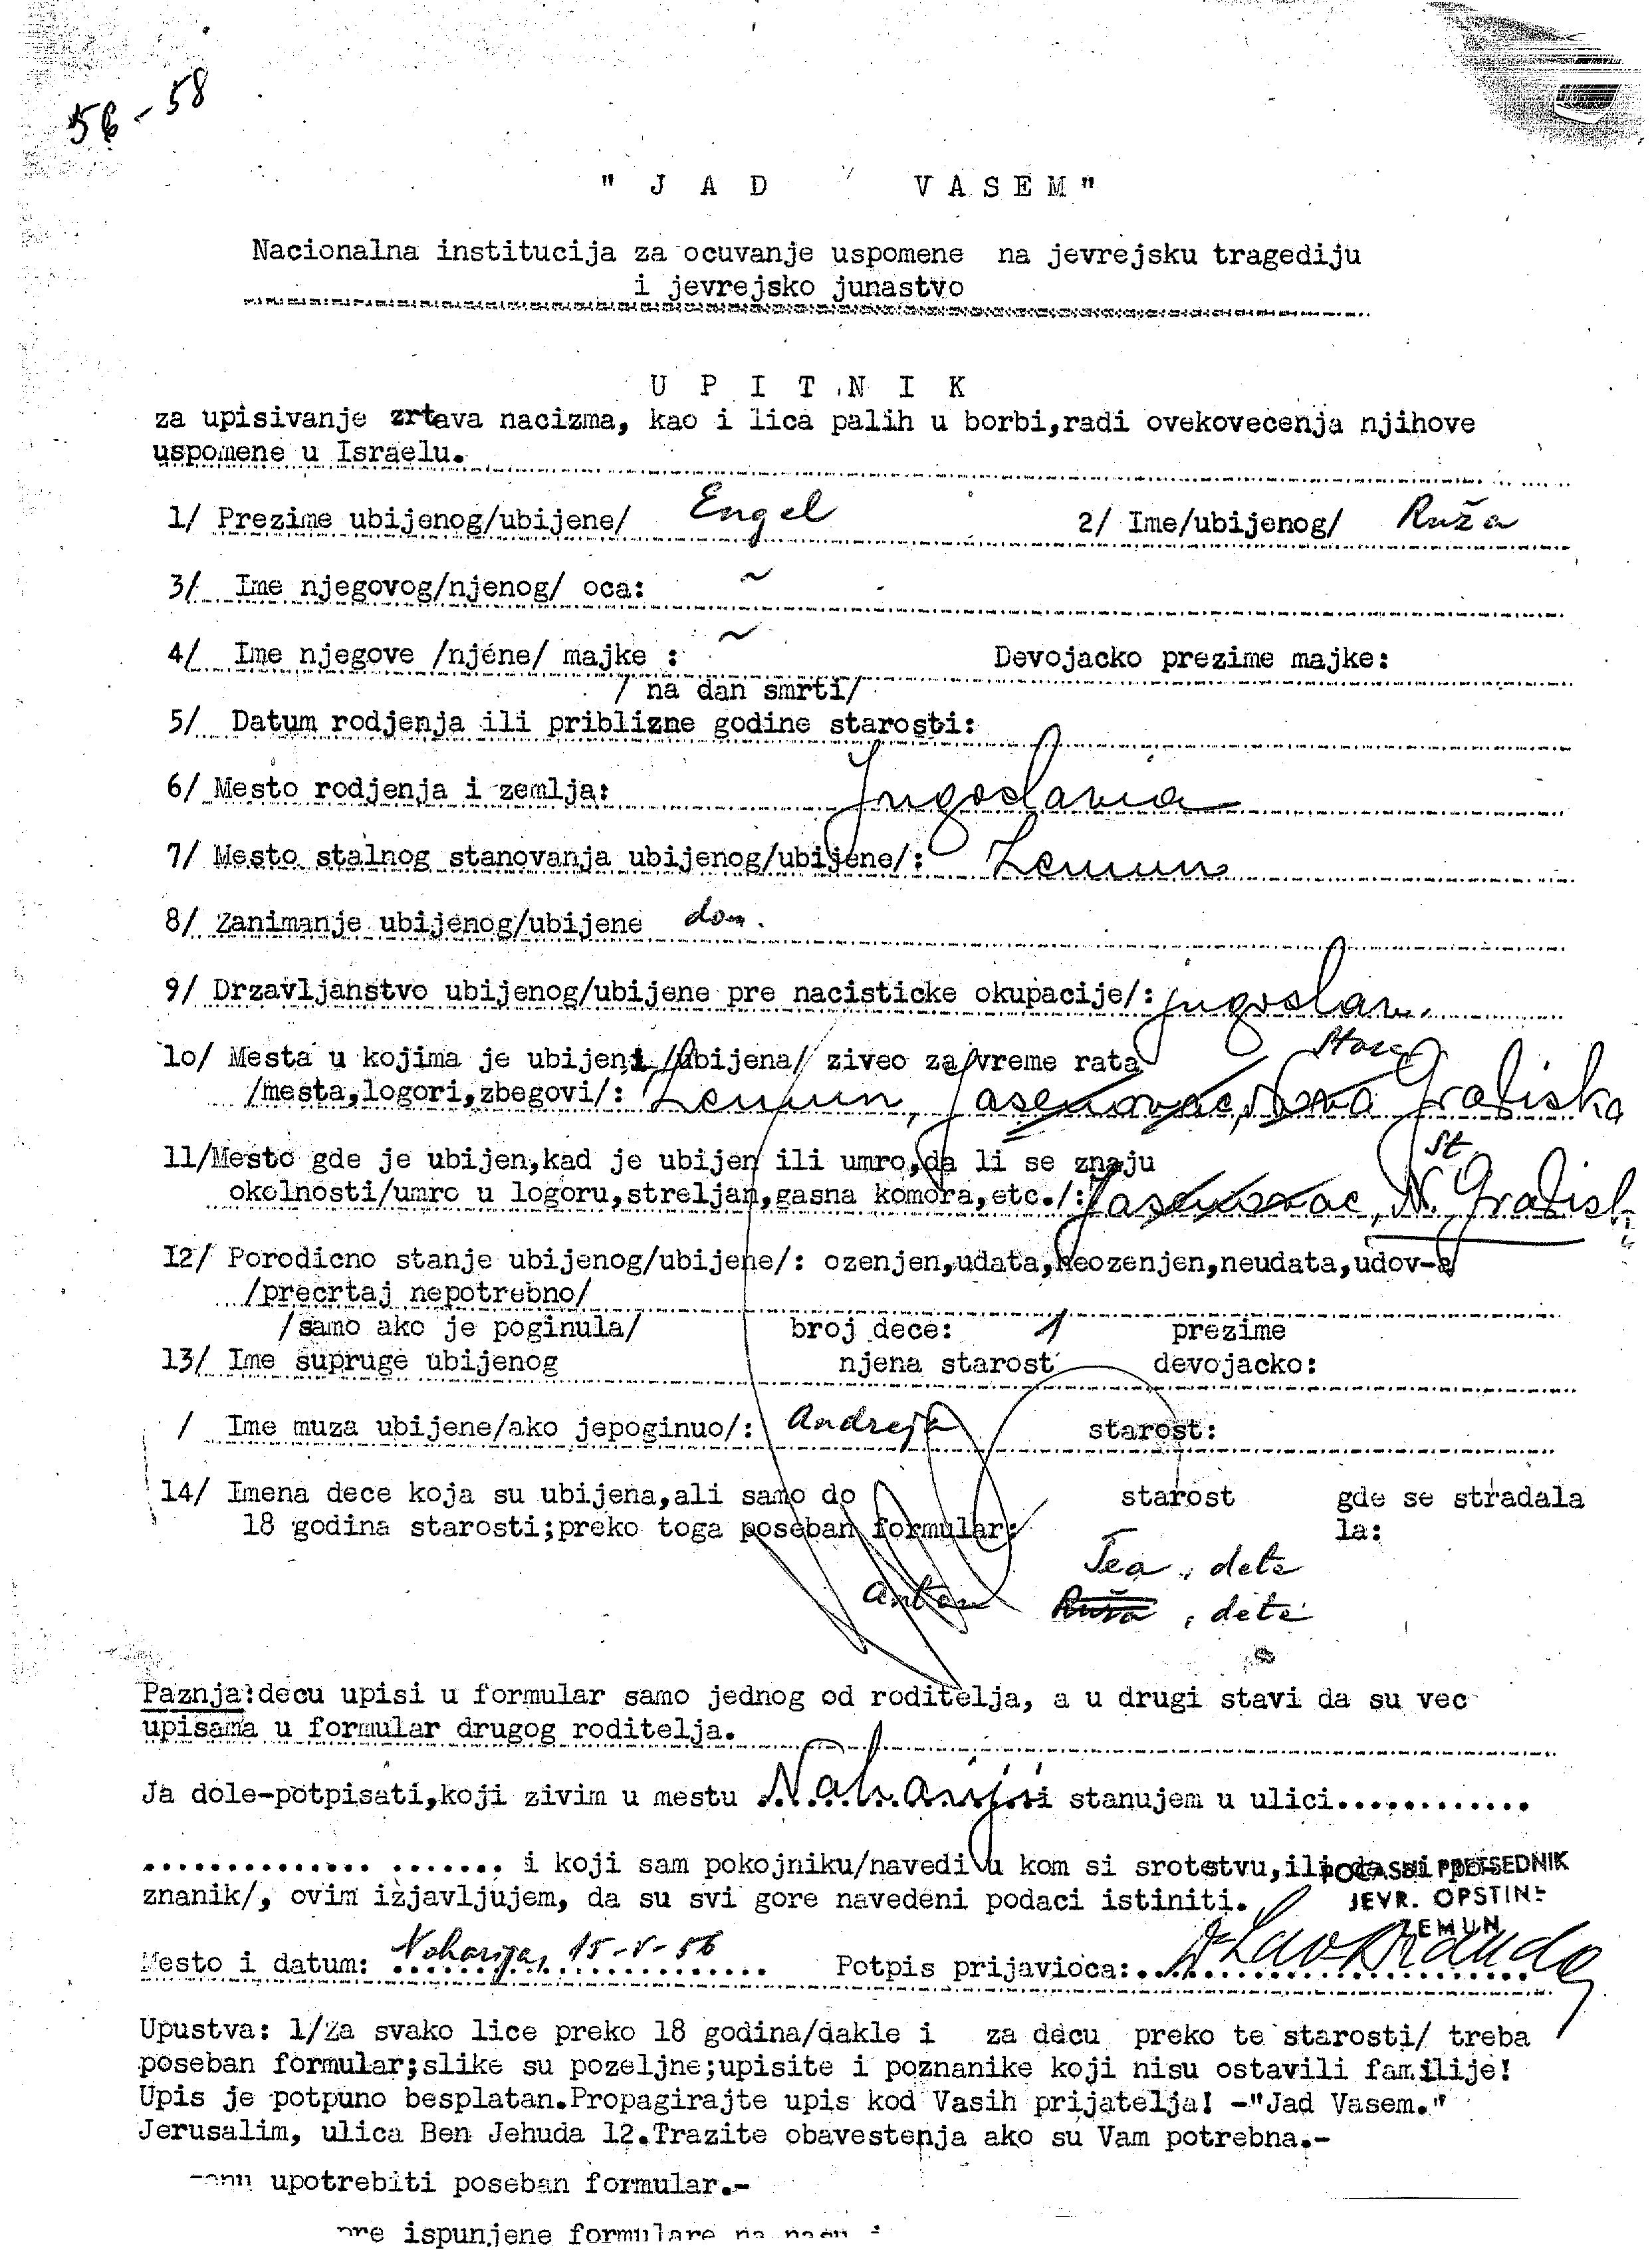 56-58
"JAD VASEM"
Nacionalna institucija za ocuvanje uspomene na jevrejsku tragediju
i jevrejsko junastvo
UPITNIK
za upisivanje zrtava nacizma, kao i lica palih u borbi,radi ovekovecenja njihove
uspomene u Israelu.
1/ Prezime ubijenog/ubijene/ Engel 2/ Ime/ubijenog/ Ruža
3/ Ime njegovog/njenog/ oca: ~
4/ Ime njegove /njene/ majke : ~ Devojacko prezime majke:
/ na dan smrti/
5/ Datum rodjenja ili priblizne godine starosti:
6/ Mesto rodjenja i zemlja: Jugoslavia
7/ Mesto stalnog stanovanja ubijenog/ubijene/: Zemun
8/ Zanimanje ubijenog/ubijene dom.
9/ Drzavljanstvo ubijenog/ubijene pre nacisticke okupacije/: jugoslav.
Stara
1o/ Mesta u kojima je ubijeni /ubijena/ ziveo za vreme rata
/mesta,logori,zbegovi/: Zemun, Jasenovac, Nova Gradiska
St
11/Mesto gde je ubijen,kad je ubijen ili umro,da li se znaju
okolnosti/umro u logoru,streljan,gasna komora,etc./: Jasenovac, N. Gradiski
12/ Porodicno stanje ubijenog/ubijene/: ozenjen,udata,neozenjen,neudata,udov-a
/precrtaj nepotrebno/
/samo ako je poginula/ broj dece: 1 prezime
13/ Ime supruge ubijenog njena starost devojacko:
/ Ime muza ubijene/ako jepoginuo/: Andreja starost:
14/ Imena dece koja su ubijena,ali samo do starost gde se stradala
18 godina starosti;preko toga poseban formular: la:
Tea, dete
Anton Ruža, dete
Paznja:decu upisi u formular samo jednog od roditelja, a u drugi stavi da su vec
upisana u formular drugog roditelja.
Ja dole-potpisati,koji zivim u mestu Nahariji i stanujem u ulici............
.............. ....... i koji sam pokojniku/navedi u kom si srotstvu,ili da si po-
POČASNI PRETSEDNIK
znanik/, ovim izjavljujem, da su svi gore navedeni podaci istiniti.
JEVR. OPSTINE
ZEMUN
Mesto i datum: Naharija, 15-V-56 Potpis prijavioca:
Upustva: 1/Za svako lice preko 18 godina/dakle i za decu preko te starosti/ treba
poseban formular;slike su pozeljne;upisite i poznanike koji nisu ostavili familije!
Upis je potpuno besplatan.Propagirajte upis kod Vasih prijatelja! -"Jad Vasem."
Jerusalim, ulica Ben Jehuda 12.Trazite obavestenja ako su Vam potrebna.-
upotrebiti poseban formular.-
ispunjene formulare na